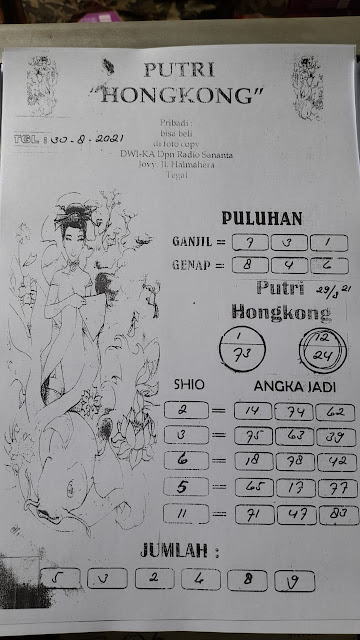 PUTRI
"HONGKONG"
Pribadi :
bisa beli
di foto copy
DWI-KA Dpn Radio Sananta
Jovy. Jl. Halmahera
Tegal
TGL : 30-8-2021
PULUHAN
GANJIL = 7 3 1
GENAP = 8 4 6
Putri 29/8 21
Hongkong
1 12
73 24
SHIO ANGKA JADI
2 = 14 74 62
3 = 75 63 39
6 = 18 78 42
5 = 65 17 77
11 = 71 47 83
JUMLAH :
5 3 2 4 8 9